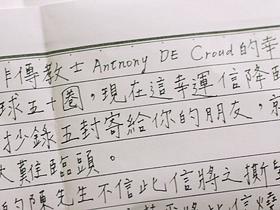 傳教士 Antnony DE Croud 的幸
球五十圈，現在這幸運信降
抄錄五封寄給你的朋友，
大難臨頭。
的陳先生不信此信將之撕